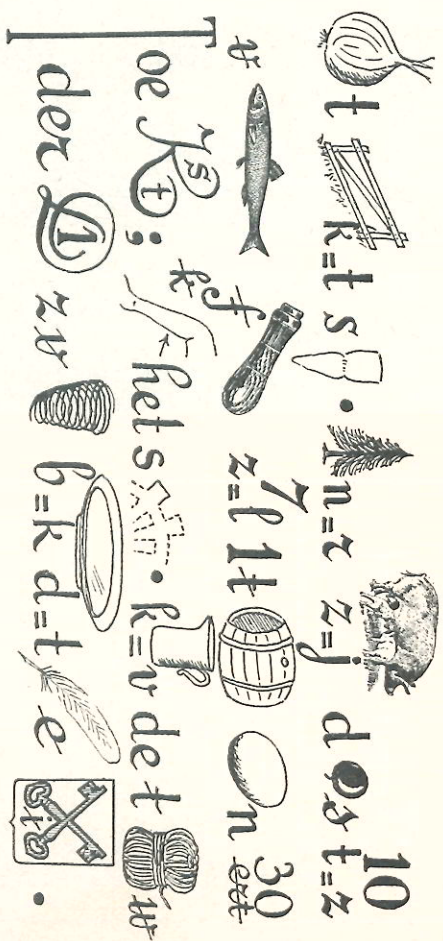 t k=t s . n=r z=j d , s t=z 10
v k f 7 z=l 1 t n 30 ert
T oe K s t ; k het s . k=v de t w
der D 1 zv b=k d=t e i .